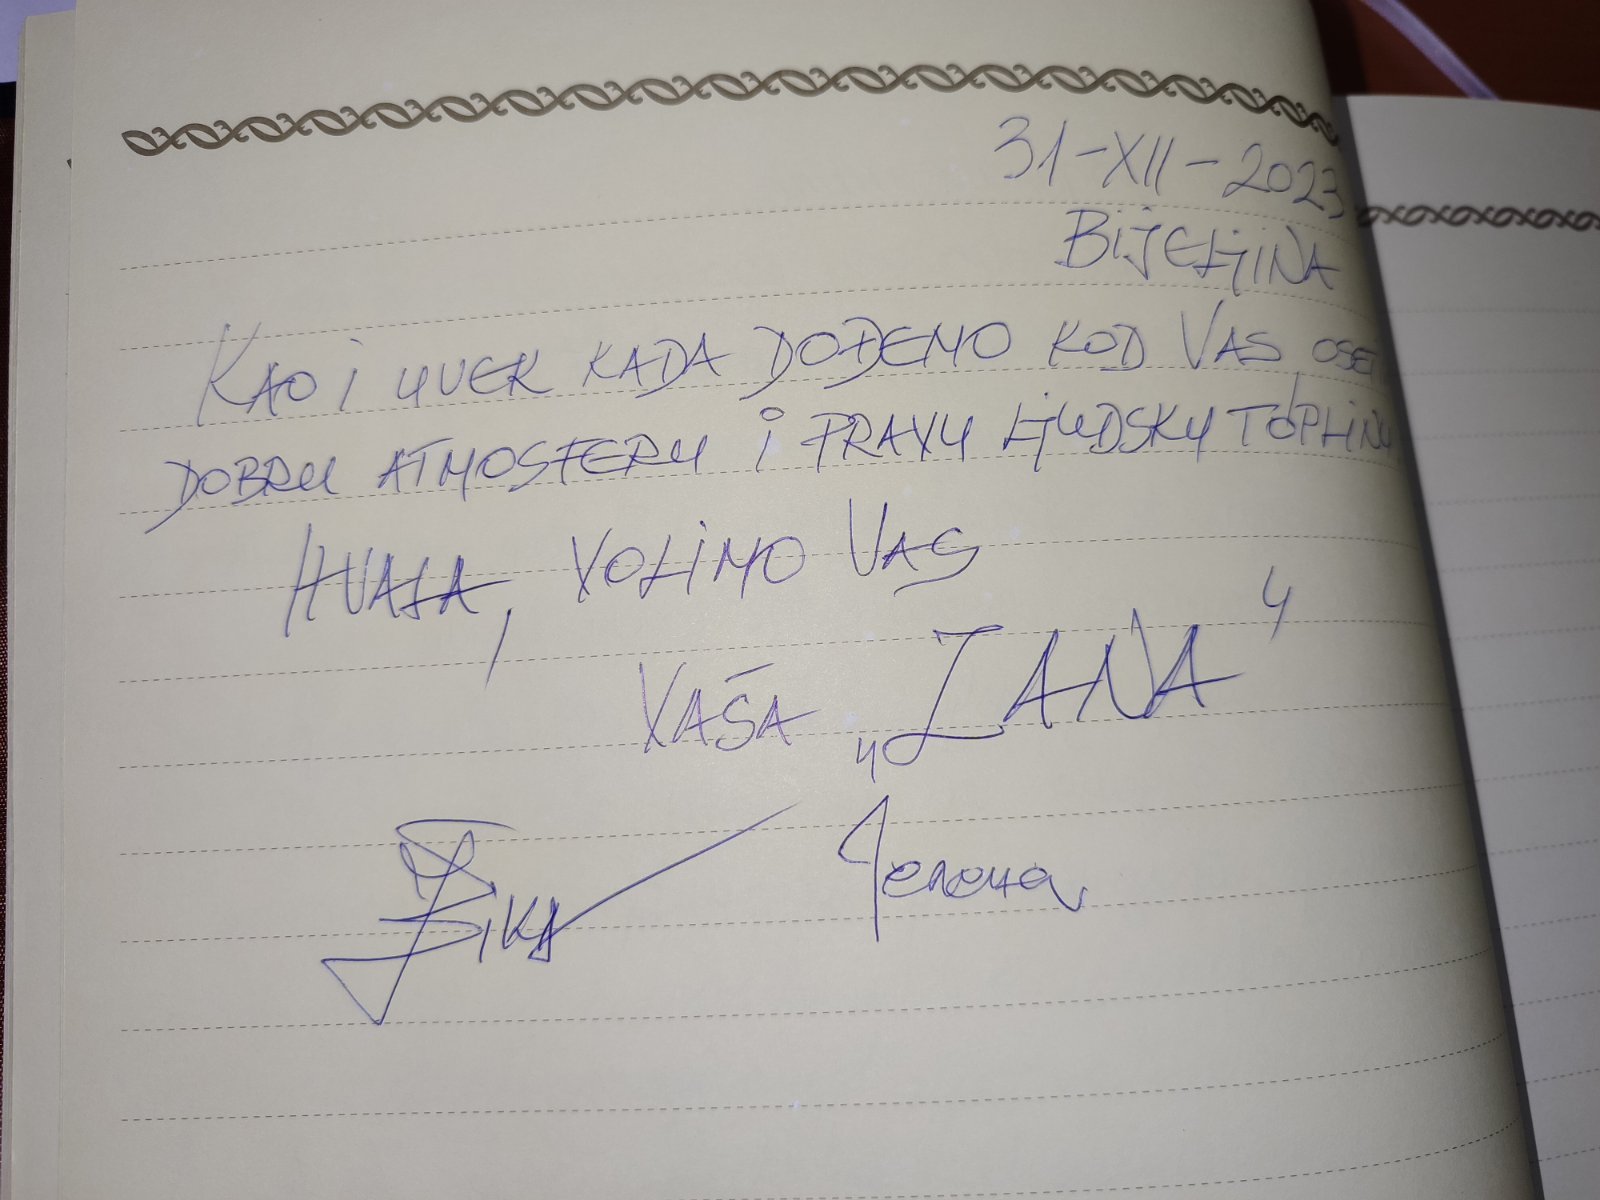 31-XII-2023
BIJELJINA
KAO I UVEK KADA DOĐEMO KOD VAS
DOBRU ATMOSFERU I PRAVU LJUDSKU TOPLINU
HVALA, VOLIMO VAS
VAŠA „ZANA"
ŽIKA Јелена